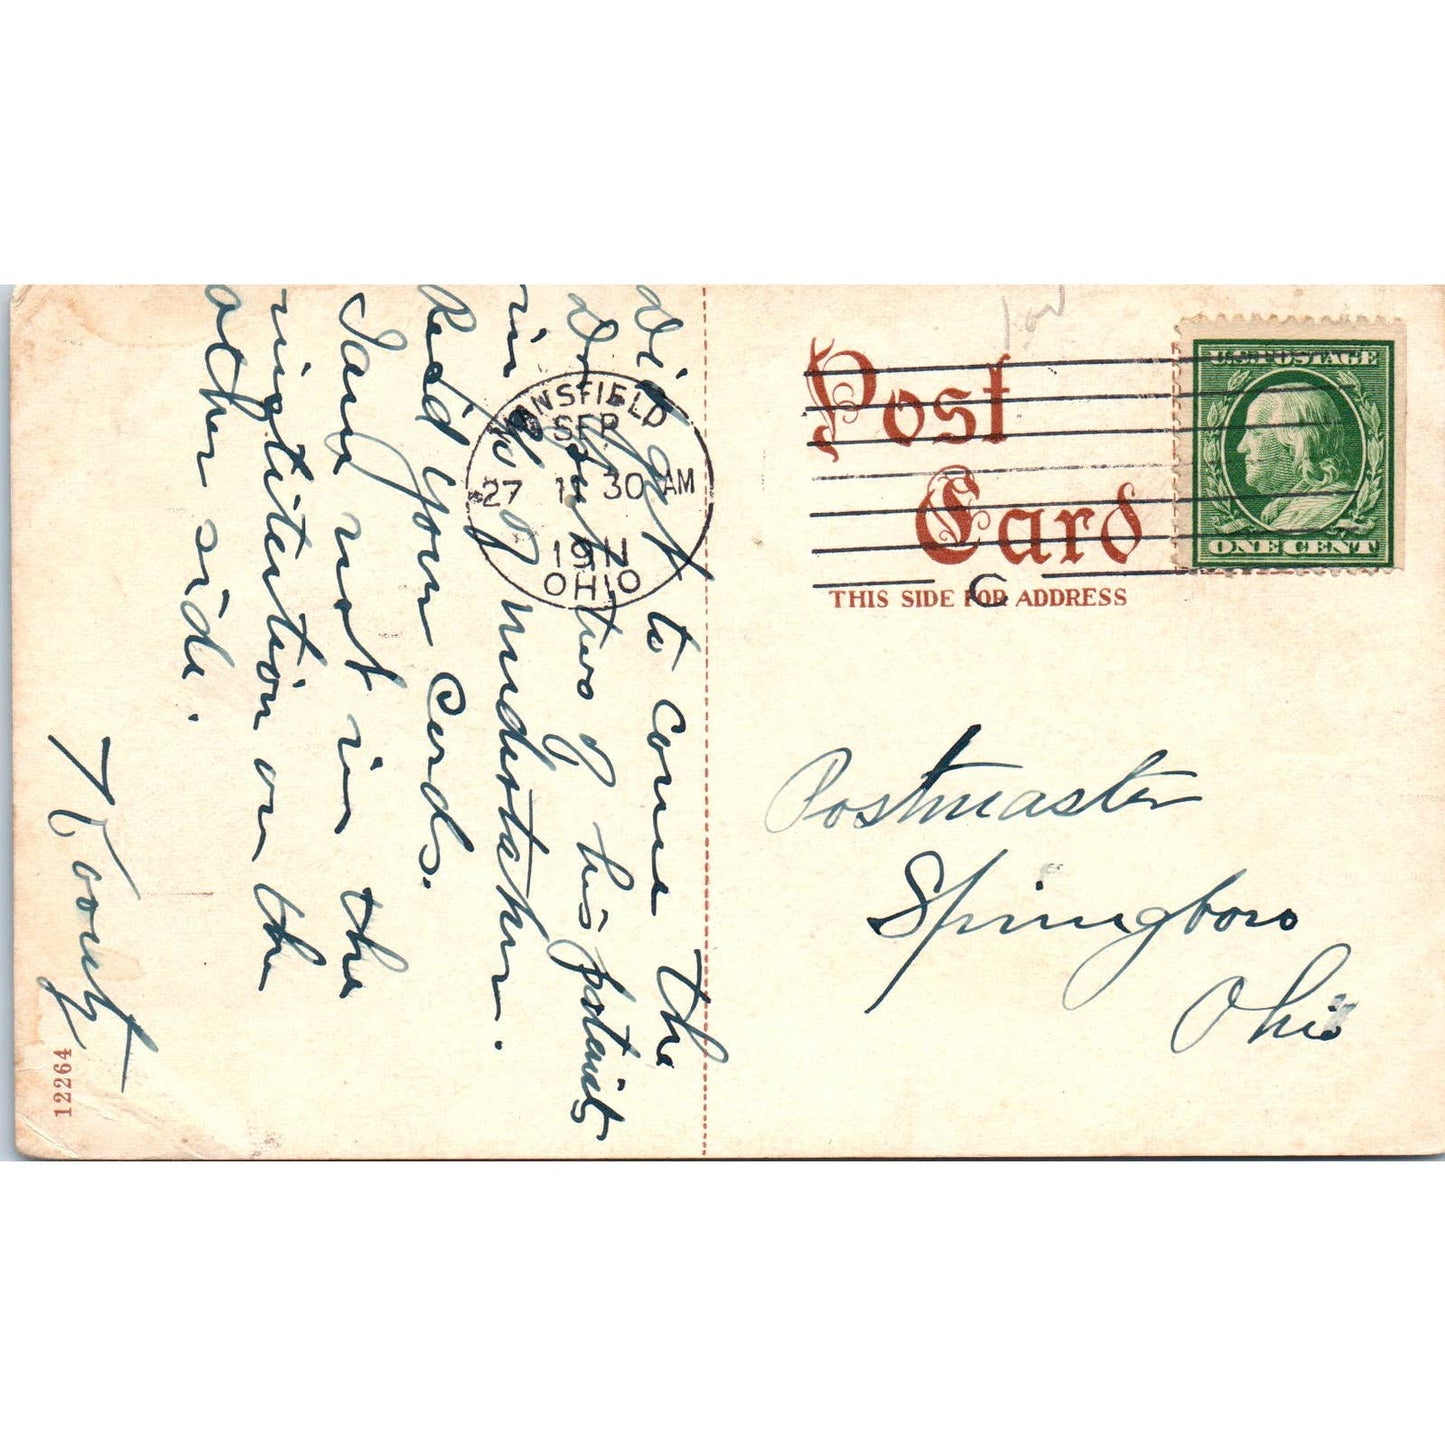 Did get to come the
Dr sent two of his patients
in
Rec'd your Cards.
I am not in the
institution on the
other side.
Koontz
12264
MANSFIELD
SEP
27
30 AM
1911
OHIO
Post
Card
THIS SIDE FOR ADDRESS
C
U.S. POSTAGE
ONE CENT
Postmaster
Springboro
Ohio